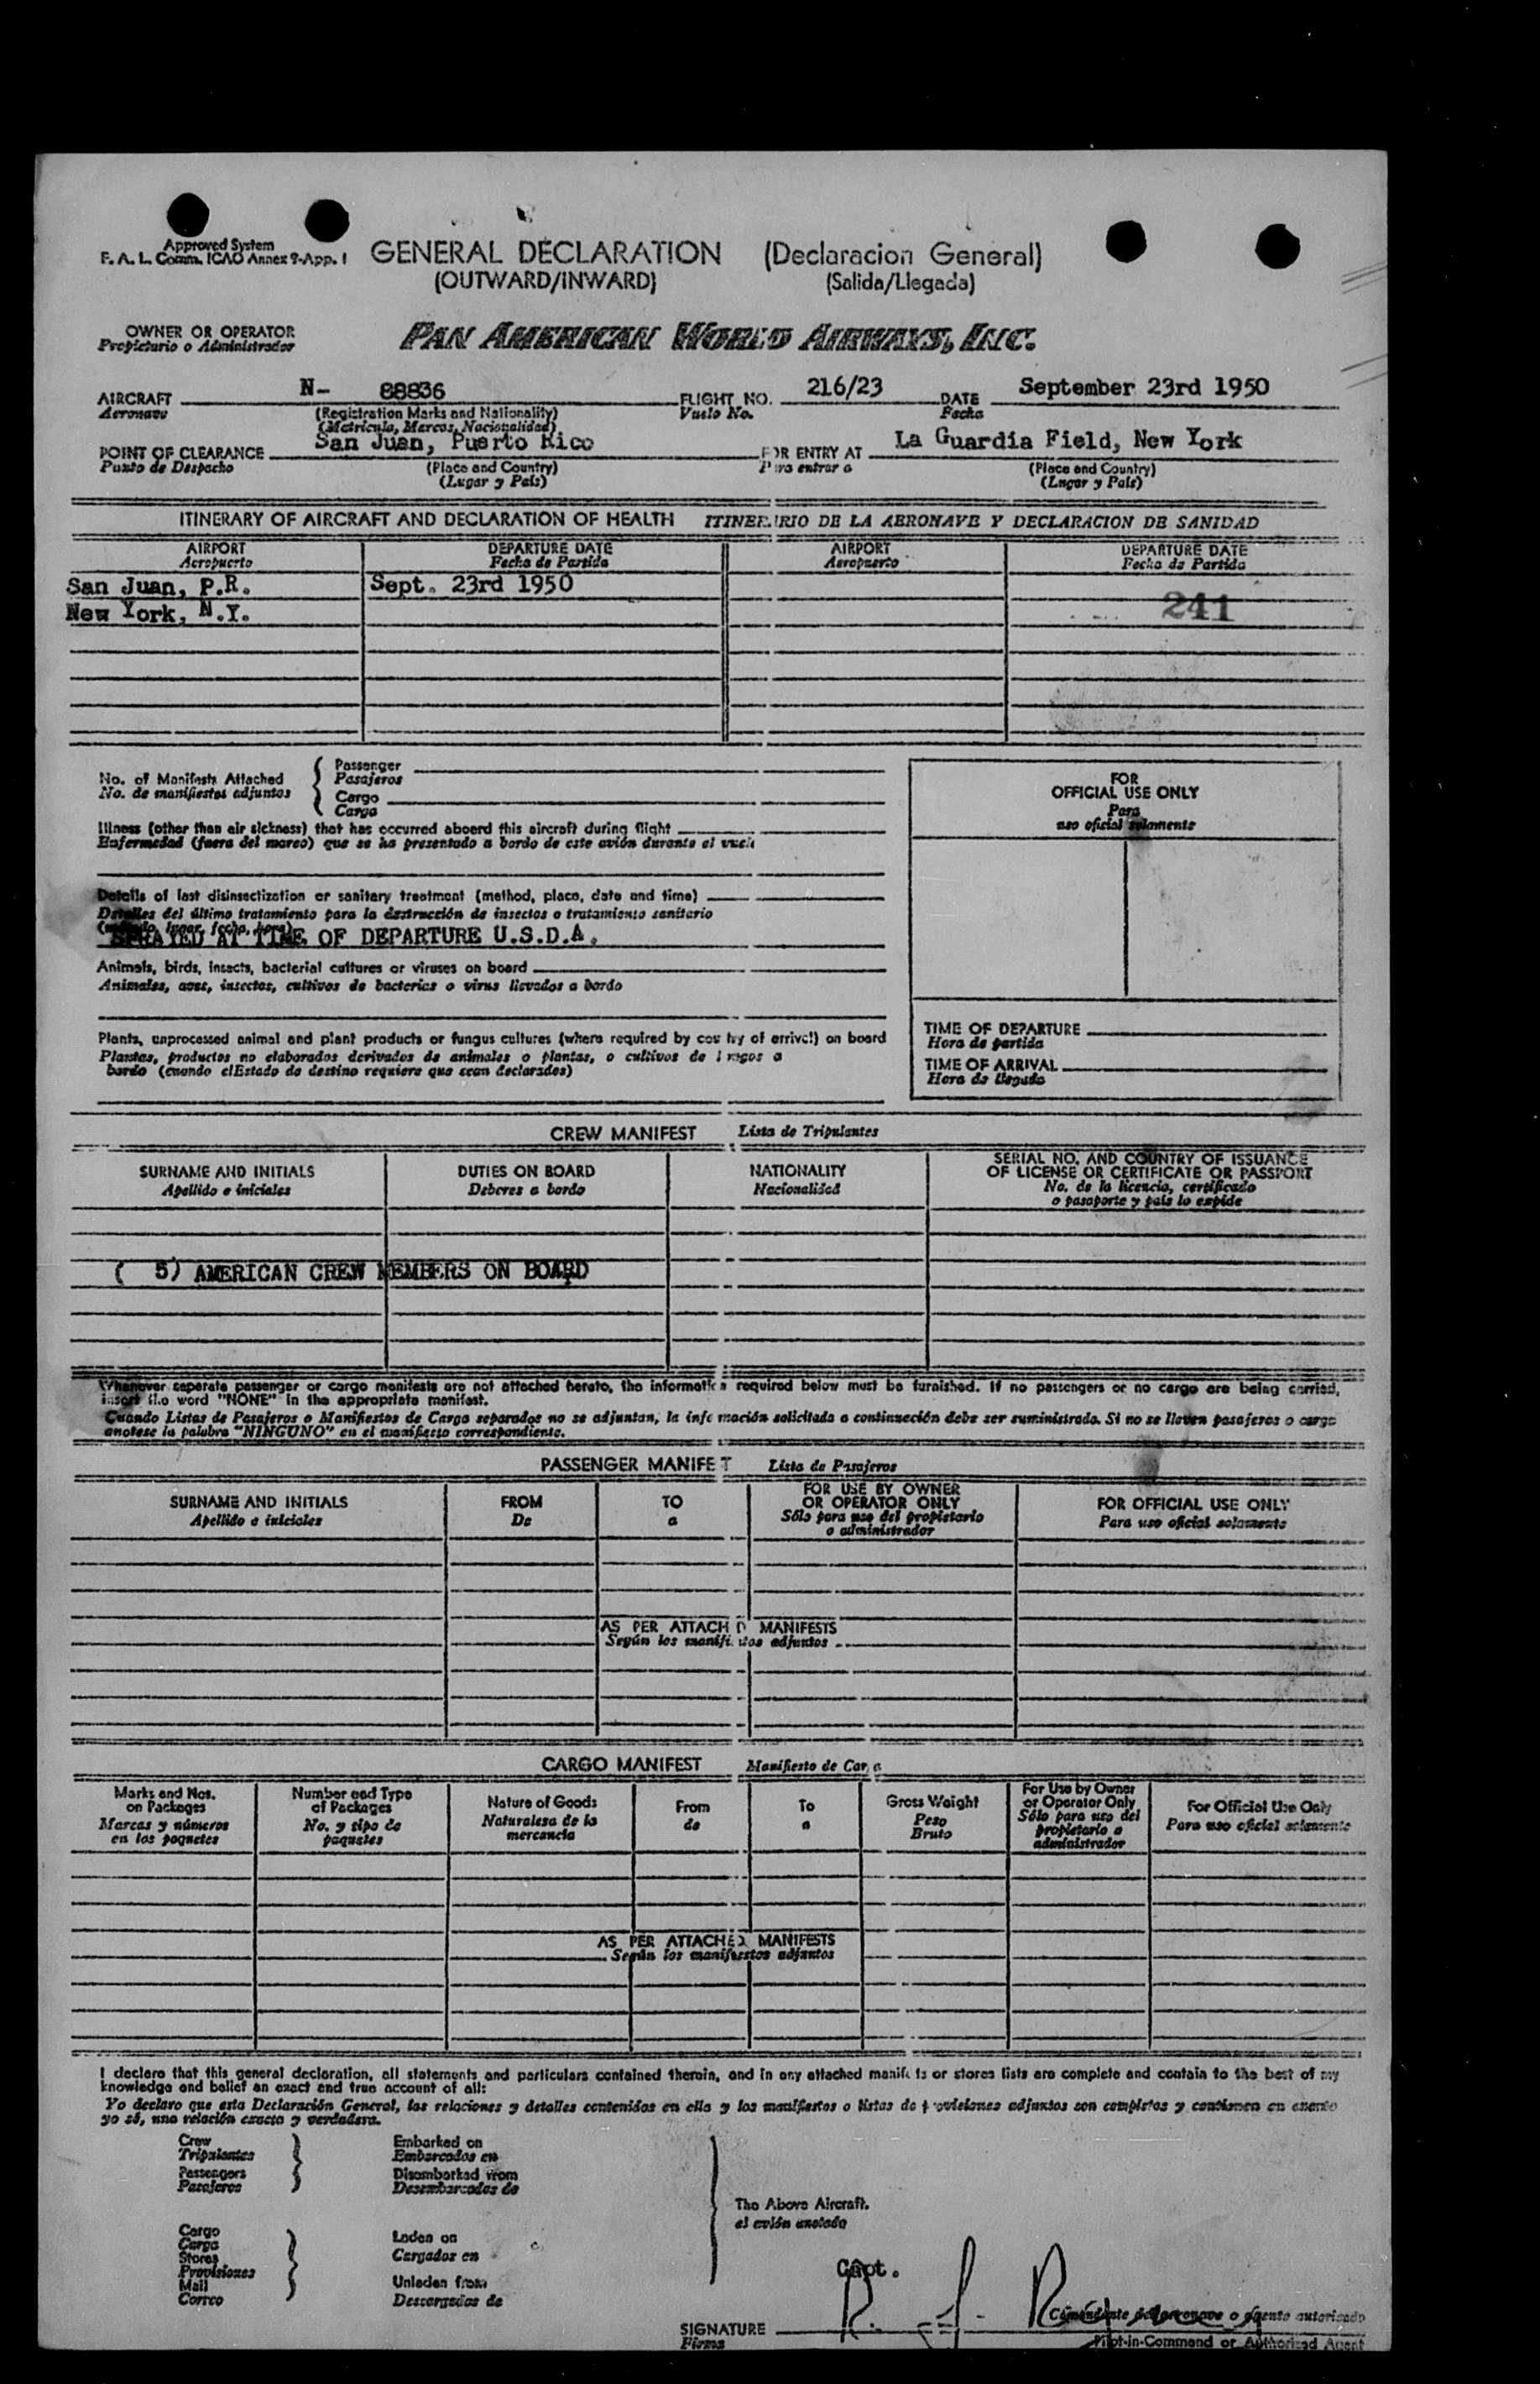 Approved System
F. A. L. Comm. ICAO Annex 9-App. 1
GENERAL DECLARATION (Declaracion General)
(OUTWARD/INWARD) (Salida/Llegada)
OWNER OR OPERATOR
Propietario o Administrador
PAN AMERICAN WORLD AIRWAYS, INC.
AIRCRAFT N- 88836 FLIGHT NO. 216/23 DATE September 23rd 1950
Aeronave (Registration Marks and Nationality) Vuelo No. Fecha
(Matricula, Marcas, Nacionalidad)
POINT OF CLEARANCE San Juan, Puerto Rico FOR ENTRY AT La Guardia Field, New York
Punto de Despacho (Place and Country) Para entrar a (Place and Country)
(Lugar y País) (Lugar y País)
ITINERARY OF AIRCRAFT AND DECLARATION OF HEALTH ITINERARIO DE LA AERONAVE Y DECLARACION DE SANIDAD
AIRPORT DEPARTURE DATE AIRPORT DEPARTURE DATE
Aeropuerto Fecha de Partida Aeropuerto Fecha de Partida
San Juan, P.R. Sept. 23rd 1950
New York, N.Y. 241
No. of Manifests Attached
No. de manifiestos adjuntos
Passenger
Pasajeros
Cargo
Carga
Illness (other than air sickness) that has occurred aboard this aircraft during flight
Enfermedad (fuera del mareo) que se ha presentado a bordo de este avión durante el vuelo
Details of last disinsectization or sanitary treatment (method, place, date and time)
Detalles del último tratamiento para la destrucción de insectos o tratamiento sanitario
(método, lugar, fecha, hora)
SPRAYED AT TIME OF DEPARTURE U.S.D.A.
Animals, birds, insects, bacterial cultures or viruses on board
Animales, aves, insectos, cultivos de bacterias o virus llevados a bordo
Plants, unprocessed animal and plant products or fungus cultures (where required by country of arrival) on board
Plantas, productos no elaborados derivados de animales o plantas, o cultivos de hongos a
bordo (cuando elEstado de destino requiere que sean declarados)
FOR
OFFICIAL USE ONLY
Para
uso oficial solamente
TIME OF DEPARTURE
Hora de partida
TIME OF ARRIVAL
Hora de llegada
CREW MANIFEST Lista de Tripulantes
SURNAME AND INITIALS DUTIES ON BOARD NATIONALITY SERIAL NO. AND COUNTRY OF ISSUANCE
OF LICENSE OR CERTIFICATE OR PASSPORT
Apellido e iniciales Deberes a bordo Nacionalidad No. de la licencia, certificado
o pasaporte y país lo expide
( 5) AMERICAN CREW MEMBERS ON BOARD
Whenever separate passenger or cargo manifests are not attached hereto, the information required below must be furnished. If no passengers or no cargo are being carried,
insert the word "NONE" in the appropriate manifest.
Cuando Listas de Pasajeros o Manifiestos de Carga separados no se adjuntan, la información solicitada a continuación debe ser suministrada. Si no se lleven pasajeros o carga
anotese la palabra "NINGUNO" en el manifiesto correspondiente.
PASSENGER MANIFEST Lista de Pasajeros
SURNAME AND INITIALS FROM TO FOR USE BY OWNER FOR OFFICIAL USE ONLY
OR OPERATOR ONLY
Apellido e iniciales De a Sólo para uso del propietario Para uso oficial solamente
o administrador
AS PER ATTACHED MANIFESTS
Según los manifiestos adjuntos
CARGO MANIFEST Manifiesto de Carga
Marks and Nos. Number and Type Nature of Goods From To Gross Weight For Use by Owner For Official Use Only
on Packages of Packages or Operator Only
Marcas y números No. y tipo de Naturalesa de la de a Peso Sólo para uso del Para uso oficial solamente
en los paquetes paquetes mercancia Bruto propietario o
administrador
AS PER ATTACHED MANIFESTS
Según los manifiestos adjuntos
I declare that this general declaration, all statements and particulars contained therein, and in any attached manifests or stores lists are complete and contain to the best of my
knowledge and belief an exact and true account of all:
Yo declaro que esta Declaración General, las relaciones y detalles contenidos en ella y los manifiestos o listas de provisiones adjuntos son completos y contienen en cuanto
yo sé, una relación exacta y verdadera.
Crew Embarked on
Tripulantes Embarcados en
Passengers Disembarked from
Pasajeros Desembarcados de
The Above Aircraft.
el avión anotado
Cargo Laden on
Carga Cargados en
Stores
Provisiones
Mail Unladen from
Correo Descargados de
Capt.
SIGNATURE R. J.
Firma
Comandante de aeronave o agente autorizado
Pilot-in-Command or Authorized Agent